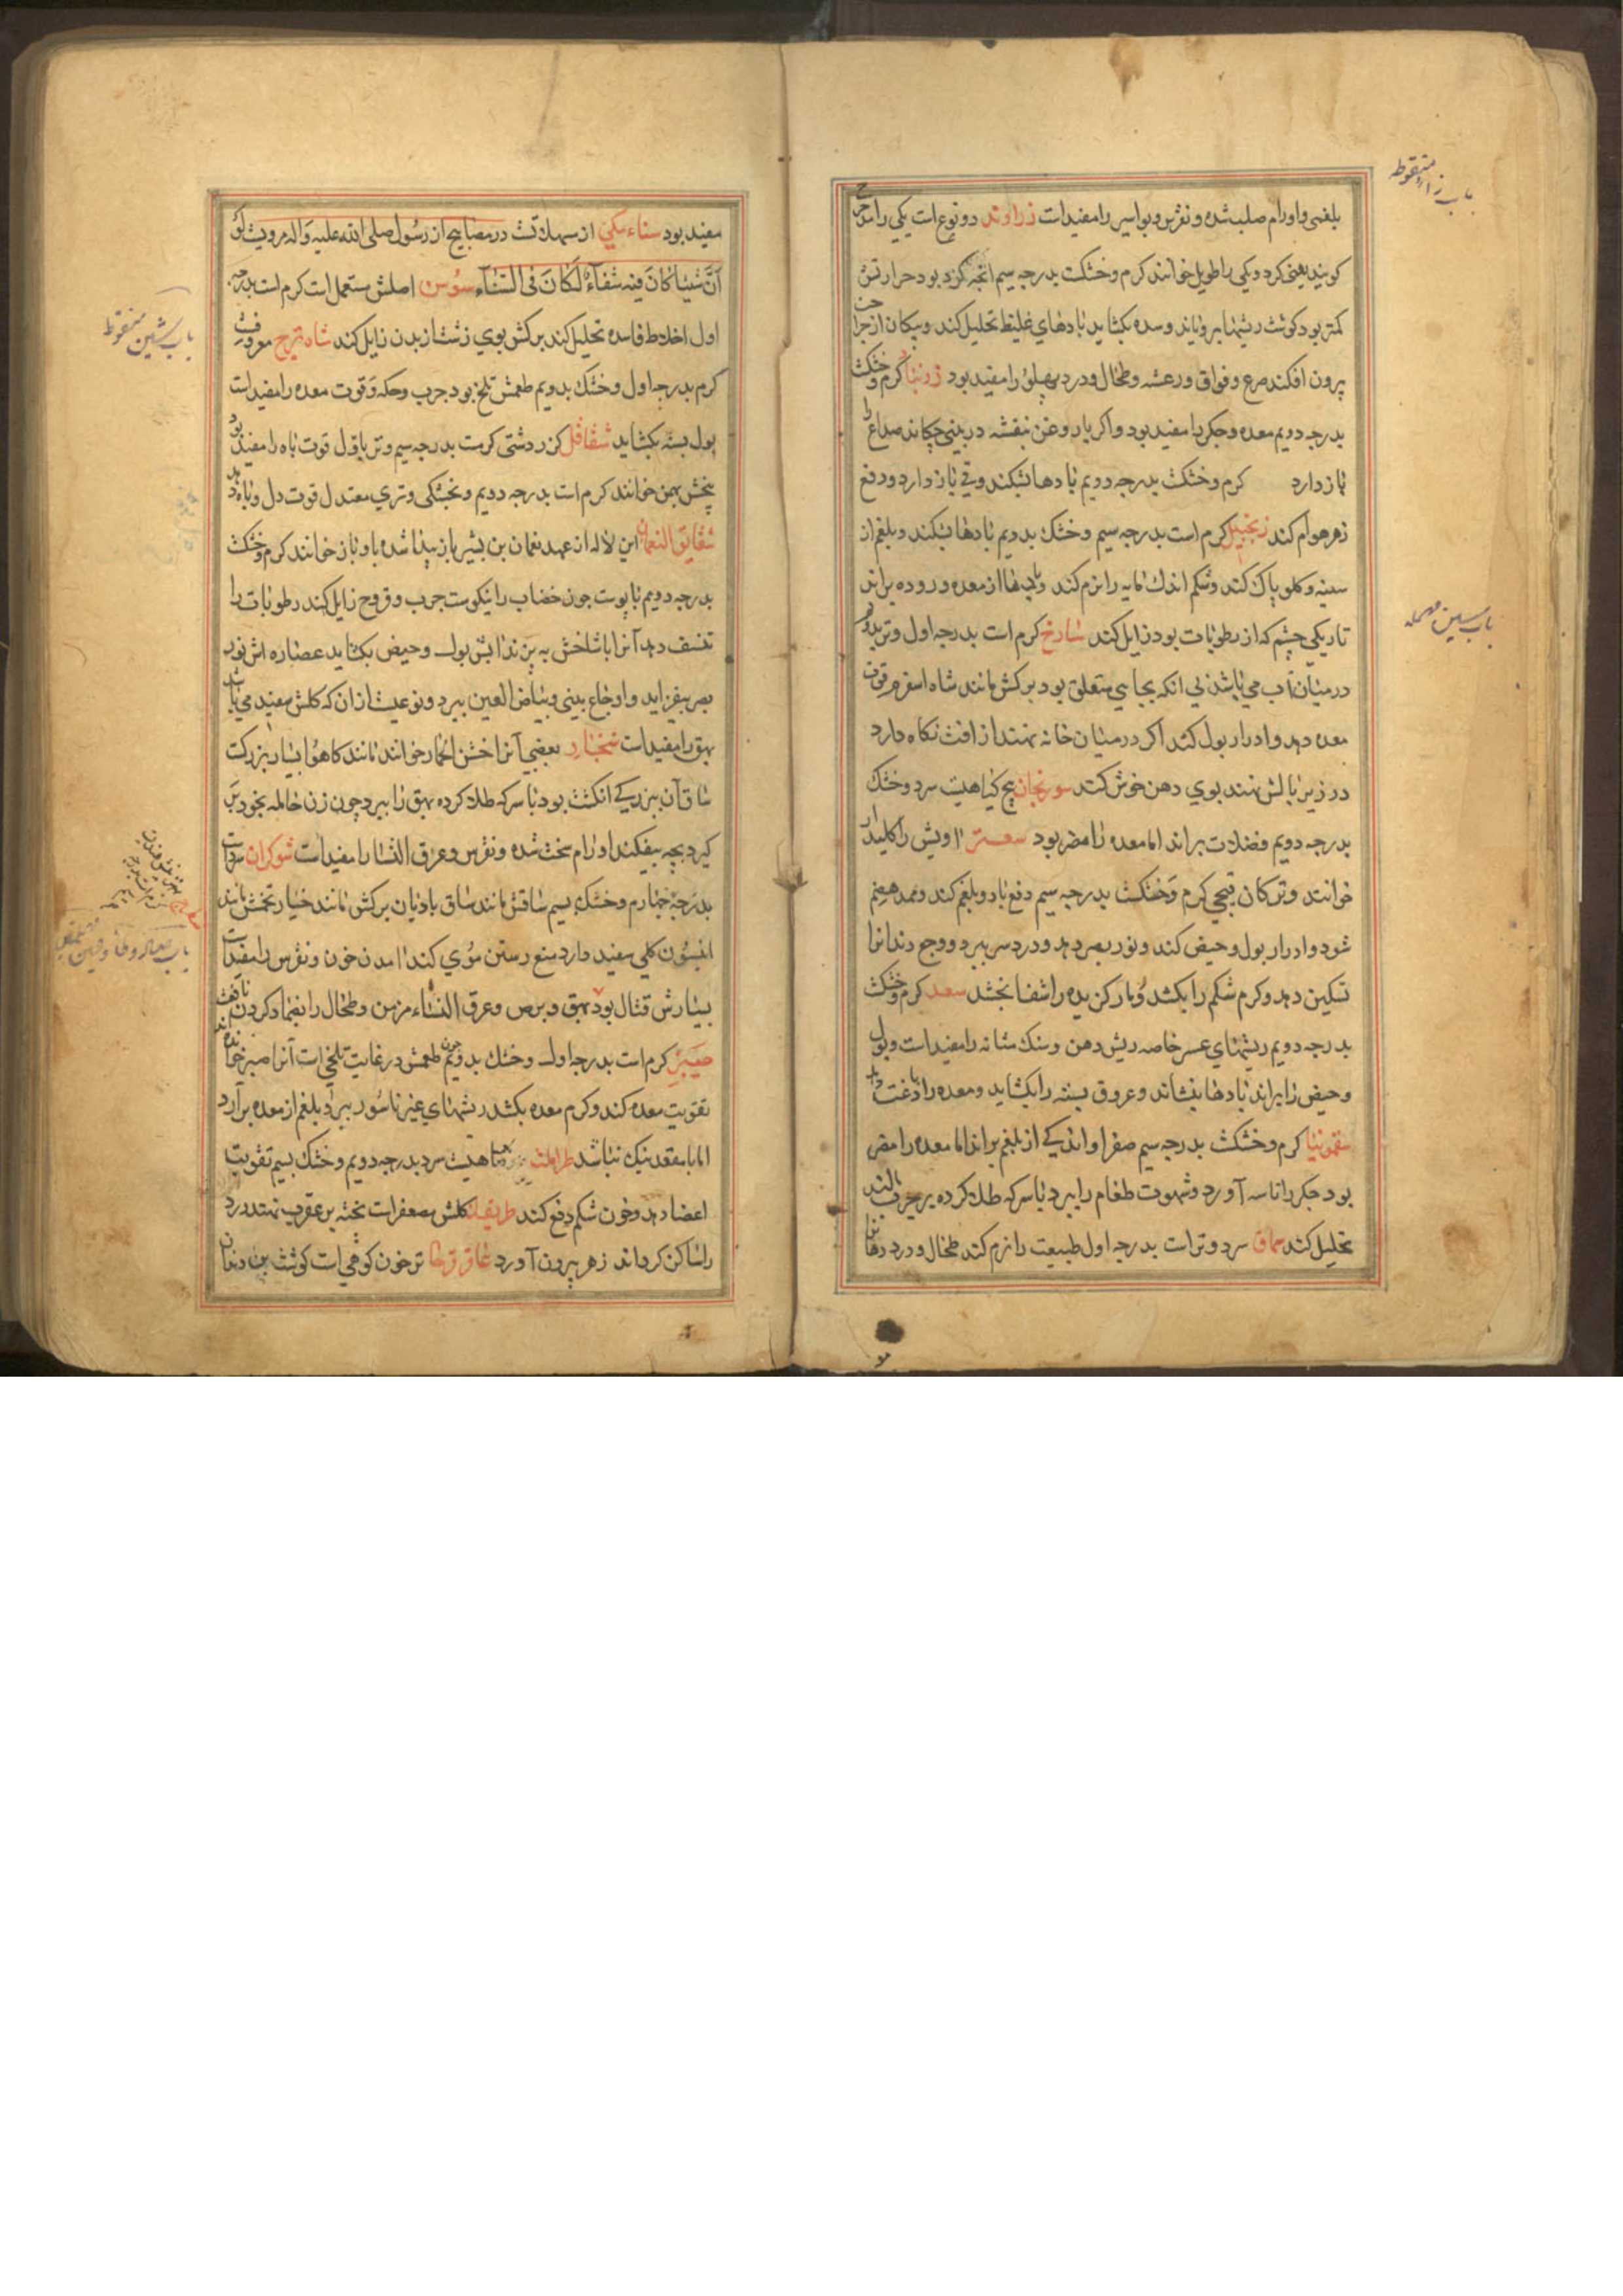 باب زاء منقوطه
بلغمی و اورام صلب شده و نقرس و بواسیر را مفیدات زراوند دو نوع است یکی را مدحرج
کویند یعنی کرد و یکی را طویل خوانند کرم و خشکت بدرجه سیم انچه کرد بود حرارتش
کمتر بود کوشت ریشها برویاند و سده بکشاید بادهای غلیظ تحلیل کند و پیکان از جراحت
بیرون افکند صرع و فواق و رعشه و طحال و درد پهلو را مفید بود زرنبا کرم و خشکت
بدرجه دویم معده و جکر را مفید بود و اکر با روغن بنفشه در بینی چکاند صداع را
باز دارد کرم و خشکت بدرجه دویم بادها بشکند و قی باز دارد و دفع
زهر هوام کند زنجبیل کرم است بدرجه سیم و خشک بدویم بادها بشکند و بلغم از
سینه و کلو پاک کند و شکم اندک مایه را نرم کند و از معده و روده براند
باب سین مهمله
تاریکی چشم که از رطوبات بود زایل کند سادج کرم است بدرجه اول و تر بدویم
در میان آب می باشد بی انکه بجایی متعلق بود برکش مانند شاه اسفرم قوت
معده دهد و ادرار بول کند اکر در میان خانه نهند از افت نکاه دارد
در زیر بالش نهند بوی دهن خوش کند سورنجان بیخ کیاهیست سرد و خشک
بدرجه دویم فضلات براند اما معده را مضر بود سعتر اویش را کلیدار
خوانند و ترکان قیجی کرم و خشکت بدرجه سیم دفع باد و بلغم کند و ممد هضم
شود و ادرار بول و حیض کند و نور بصر دهد و درد سر ببرد و وجع دندانرا
تسکین دهد و کرم شکم را بکشد و مار کزیده را شفا بخشد سعد کرم و خشکت
بدرجه دویم ریشهای عسر خاصه ریش دهن و سنک مثانه را مفیدات و بول
و حیض را براند بادها بنشاند و عروق بسته را بکشاید و معده را دباغت
سقمونیا کرم و خشکت بدرجه سیم صفرا و اندکی از بلغم براند اما معده را مضر
بود جکر را تاسه آورد و شهوت طعام را ببرد با سرکه طلا کرده بر جرب مالند
تحلیل کند سماق سرد و تر است بدرجه اول طبیعت را نرم کند طحال و درد دهان
مفید بود سناء مکی از مسهلاتست در مصابیح از رسول صلی الله علیه و اله مرویست لو
اَنّ شیئا کانَ فیه شفآءُ لَکانَ فی السَّنآء سوس اصلش مستعمل است کرم است بدرجه
باب شین منقوطه
اول اخلاط فاسده تحلیل کند برکش بوی زشت از بدن زایل کند شاه ترج معروفست
کرم بدرجه اول و خشک بدویم طعمش تلخ بود جرب و حکه و قوت معده را مفیدات
بول بسته بکشاید شقاقل کزر دشتی کرمست بدرجه سیم و تر باول قوت باه را مفید بود
بخش بهمن خوانند کرم است بدرجه دویم و بخشکی و تری معتدل قوت دل و باه دهد
شقایق النعمان این لاله از عهد نعمان بن بشیر باز پیدا شده باو باز خوانند کرم و خشکت
بدرجه دویم با پوست جوز خضاب را نیکوست جرب و قروح زایل کند رطوبات را
تنشف دهد آنرا با شاخش به پزند اپش بول و حیض بکشاید عصاره اش نور
بصر بیفزاید و اوجاع بینی و بیاض العین ببرد و نوعیست از ان که کلش سفید می باشد
بهق را مفیدات شنجار بعضی آنرا خس الحمار خوانند مانند کاهو بسیار بزرکت
ساق آن ببزرکی انکشت بود با سرکه طلا کرده بهق را ببرد چون زن حامله بخود بر
کیرد بچه بیفکند اورام سخت شده و نقرس و عرق النسا را مفیدات شوکران سردات
بدرجه چهارم و خشک بسیم ساقش مانند ساق بادیان برکش مانند خیار تخمش مانند
انیسون کلی سفید دارد منع رستن موی کند امدن خون و نقرس را مفیدات
بسیارش قتال بود بهق و برص و عرق النساء مزمن و طحال را بضماد کردن نافعست
صبر کرم است بدرجه اول و خشک بدویم طعمش در غایت تلخی است آنرا صبر خوانند
تقویت معده کند و کرم معده بکشد ریشهای عسر ناسور ببرد بلغم از معده برآرد
اما با مقعد نیک نباشد طراثیث کیاهیست سرد بدرجه دویم و خشک بسیم تقویت
اعضا دهد و خون شکم دفع کند طریفلن کلش معصفرات پخته بر عقرب نهند درد
را ساکن کرداند زهر بیرون آورد عاقرقرحا ترخون کوهی است کوشت بن دندان